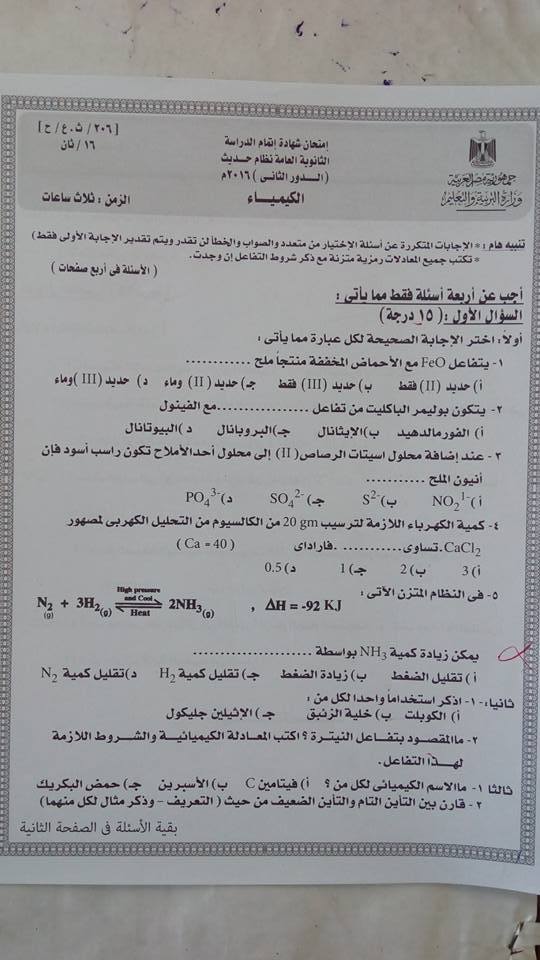 [ ٢٠٦ / ث.ع / ح ]
١٦ / ثان
إمتحان شهادة إتمام الدراسة
الثانوية العامة نظام حديث
( الــدور الثانى ) ٢٠١٦م
الكيميــاء
الزمن : ثلاث ساعات
جمهورية مصر العربية
وزارة التربية والتعليم
تنبيه هام : * الإجابات المتكررة عن أسئلة الإختيار من متعدد والصواب والخطأ لن تقدر ويتم تقدير الإجابة الأولى فقط )
* تكتب جميع المعادلات رمزية متزنة مع ذكر شروط التفاعل إن وجدت.
( الأسئلة فى أربع صفحات )
أجب عن أربعة أسئلة فقط مما يأتى :
السؤال الأول : ( ١٥ درجة )
أولاً: اختر الإجابة الصحيحة لكل عبارة مما يأتى :
١- يتفاعل FeO مع الأحماض المخففة منتجاً ملح ............
أ) حديد (II) فقط ب) حديد (III) فقط جـ) حديد (II) وماء د) حديد (III) وماء
٢- يتكون بوليمر الباكليت من تفاعل ................ مع الفينول
أ) الفورمالدهيد ب) الإيثانال جـ) البروبانال د) البيوتانال
٣- عند إضافة محلول اسيتات الرصاص (II) إلى محلول أحد الأملاح تكون راسب أسود فإن
أنيون الملح ............
أ) NO₂¹⁻ ب) S²⁻ جـ) SO₄²⁻ د) PO₄³⁻
٤- كمية الكهرباء اللازمة لترسيب 20 gm من الكالسيوم من التحليل الكهربى لمصهور
CaCl₂ .تساوى............ فاراداى ( Ca = 40 )
أ) 3 ب) 2 جـ) 1 د) 0.5
٥- فى النظام المتزن الآتى :
N₂(g) + 3H₂(g) ⇌ 2NH₃(g) , ΔH = -92 KJ
High pressure
and Cool
Heat
يمكن زيادة كمية NH₃ بواسطة ........................
أ) تقليل الضغط ب) زيادة الضغط جـ) تقليل كمية H₂ د) تقليل كمية N₂
ثانيا:- ١- اذكر استخداماً واحدا لكل من :
أ) الكوبلت ب) خلية الزئبق جـ) الإيثيلين جليكول
٢- ما المقصود بتفاعل النيترة ؟ اكتب المعادلة الكيميائية والشروط اللازمة
لهـذا التفاعل.
ثالثا ١- ما الاسم الكيميائى لكل من ؟ أ) فيتامين C ب) الأسبرين جـ) حمض البكريك
٢- قارن بين التأين التام والتأين الضعيف من حيث ( التعريف - وذكر مثال لكل منهما )
بقية الأسئلة فى الصفحة الثانية